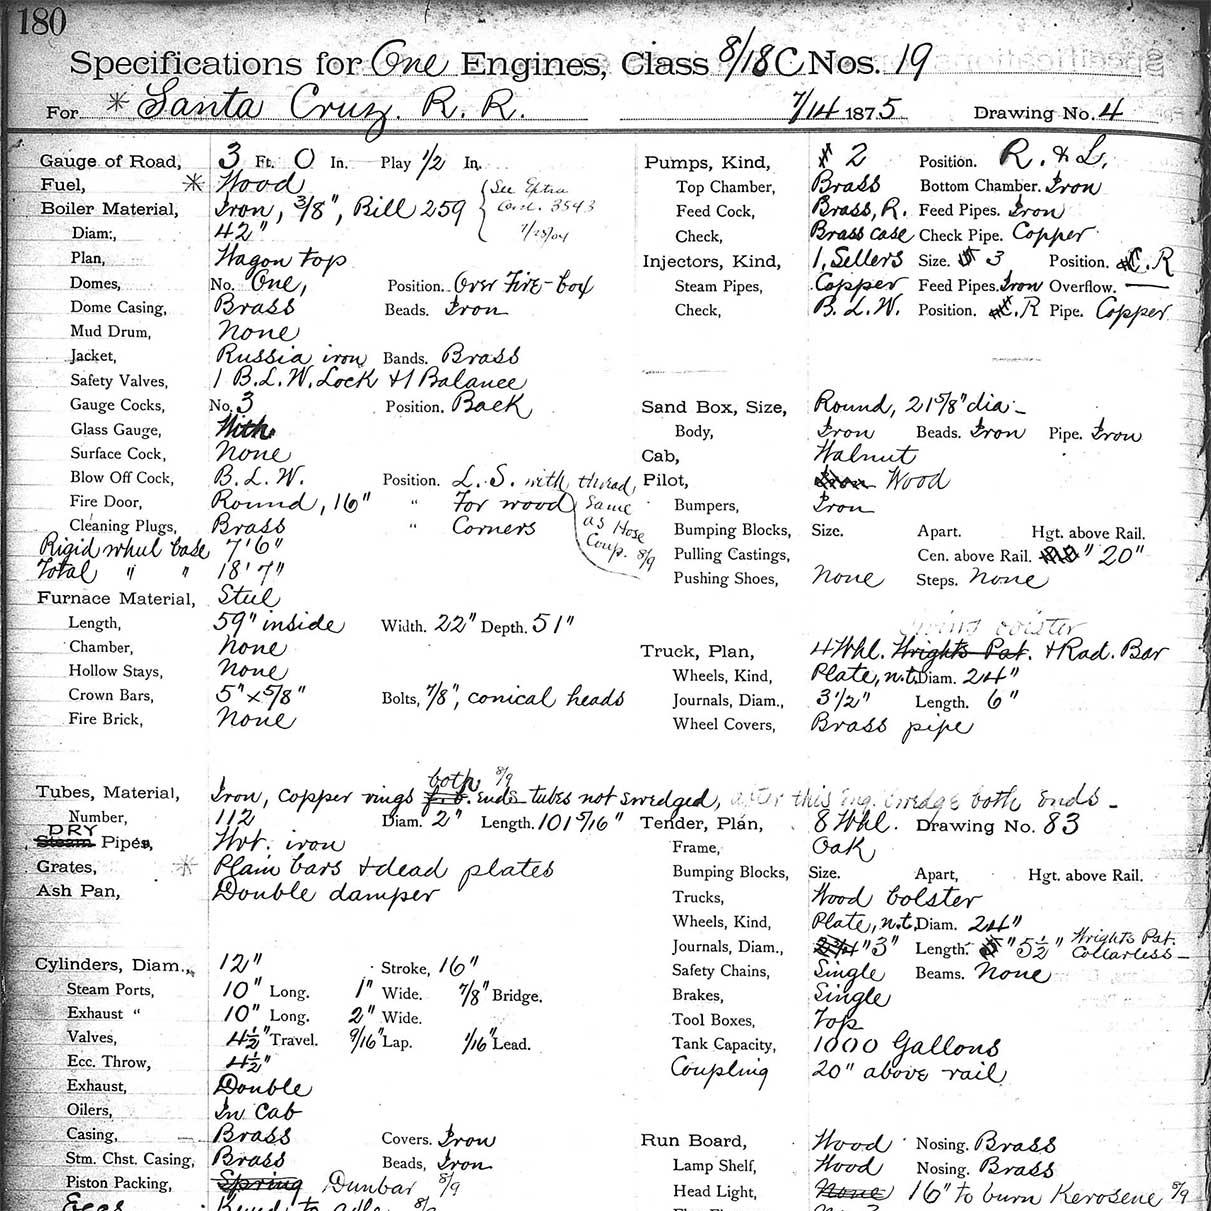 180
Specifications for One Engines, Class 8/18C Nos. 19
For * Santa Cruz. R. R. 7/14 1875 Drawing No. 4
Gauge of Road, 3 Ft. 0 In. Play 1/2 In.
Fuel, * Wood
Boiler Material, Iron, 3/8", Bill 259 See Extra
3543
Diam:, 42" 7/25/04
Plan, Wagon top
Domes, No. One, Position. Over Fire-box
Dome Casing, Brass Beads. Iron
Mud Drum, None
Jacket, Russia iron Bands. Brass
Safety Valves, 1 B.L.W. Lock & 1 Balance
Gauge Cocks, No. 3 Position. Back
Glass Gauge, With
Surface Cock, None
Blow Off Cock, B. L. W. Position. L. S. with thread
Fire Door, Round, 16" " For wood Same
Cleaning Plugs, Brass " Corners as Hose
Rigid wheel base 7'6" Coup. 8/9
Total " " 18'7"
Furnace Material, Steel
Length, 59" inside Width. 22" Depth. 51"
Chamber, None
Hollow Stays, None
Crown Bars, 5" x 5/8" Bolts, 7/8", conical heads
Fire Brick, None
both 8/9
Tubes, Material, Iron, copper rings f. b. ends tubes not swedged, after this eng. swedge both ends -
Number, 112 Diam. 2" Length. 101 5/16"
DRY
Steam Pipes, Wrt. iron
Grates, * Plain bars & dead plates
Ash Pan, Double damper
Cylinders, Diam., 12" Stroke, 16"
Steam Ports, 10" Long. 1" Wide. 7/8" Bridge.
Exhaust " 10" Long. 2" Wide.
Valves, 4½" Travel. 9/16" Lap. 1/16" Lead.
Ecc. Throw, 4½"
Exhaust, Double
Oilers, In Cab
Casing, Brass Covers. Iron
Stm. Chst. Casing, Brass Beads, Iron
Piston Packing, Spring Dunbar 8/9
Pumps, Kind, 2 Position. R. & L.
Top Chamber, Brass Bottom Chamber. Iron
Feed Cock, Brass, R. Feed Pipes. Iron
Check, Brass case Check Pipe. Copper
Injectors, Kind, 1, Sellers Size. 3 Position. C. R
Steam Pipes, Copper Feed Pipes. Iron Overflow. —
Check, B. L. W. Position. C. R Pipe. Copper
Sand Box, Size, Round, 21 5/8" dia -
Body, Iron Beads. Iron Pipe. Iron
Cab, Walnut
Pilot, Iron Wood
Bumpers, Iron
Bumping Blocks, Size. Apart. Hgt. above Rail.
Pulling Castings, Cen. above Rail. " 20"
Pushing Shoes, None Steps. None
swing bolster
Truck, Plan, 4 Whl. Wrights Pat. & Rad. Bar
Wheels, Kind, Plate, n.t. Diam. 24"
Journals, Diam., 3 1/2" Length. 6"
Wheel Covers, Brass pipe
Tender, Plan, 8 Whl. Drawing No. 83
Frame, Oak
Bumping Blocks, Size. Apart, Hgt. above Rail.
Trucks, Wood bolster
Wheels, Kind, Plate, n.t. Diam. 24"
Journals, Diam., " 3" Length. " 5½" Wrights Pat.
Collarless -
Safety Chains, Single Beams. None
Brakes, Single
Tool Boxes, Top
Tank Capacity, 1000 Gallons
Coupling 20" above rail
Run Board, Wood Nosing. Brass
Lamp Shelf, Wood Nosing. Brass
Head Light, None 16" to burn Kerosene 8/9